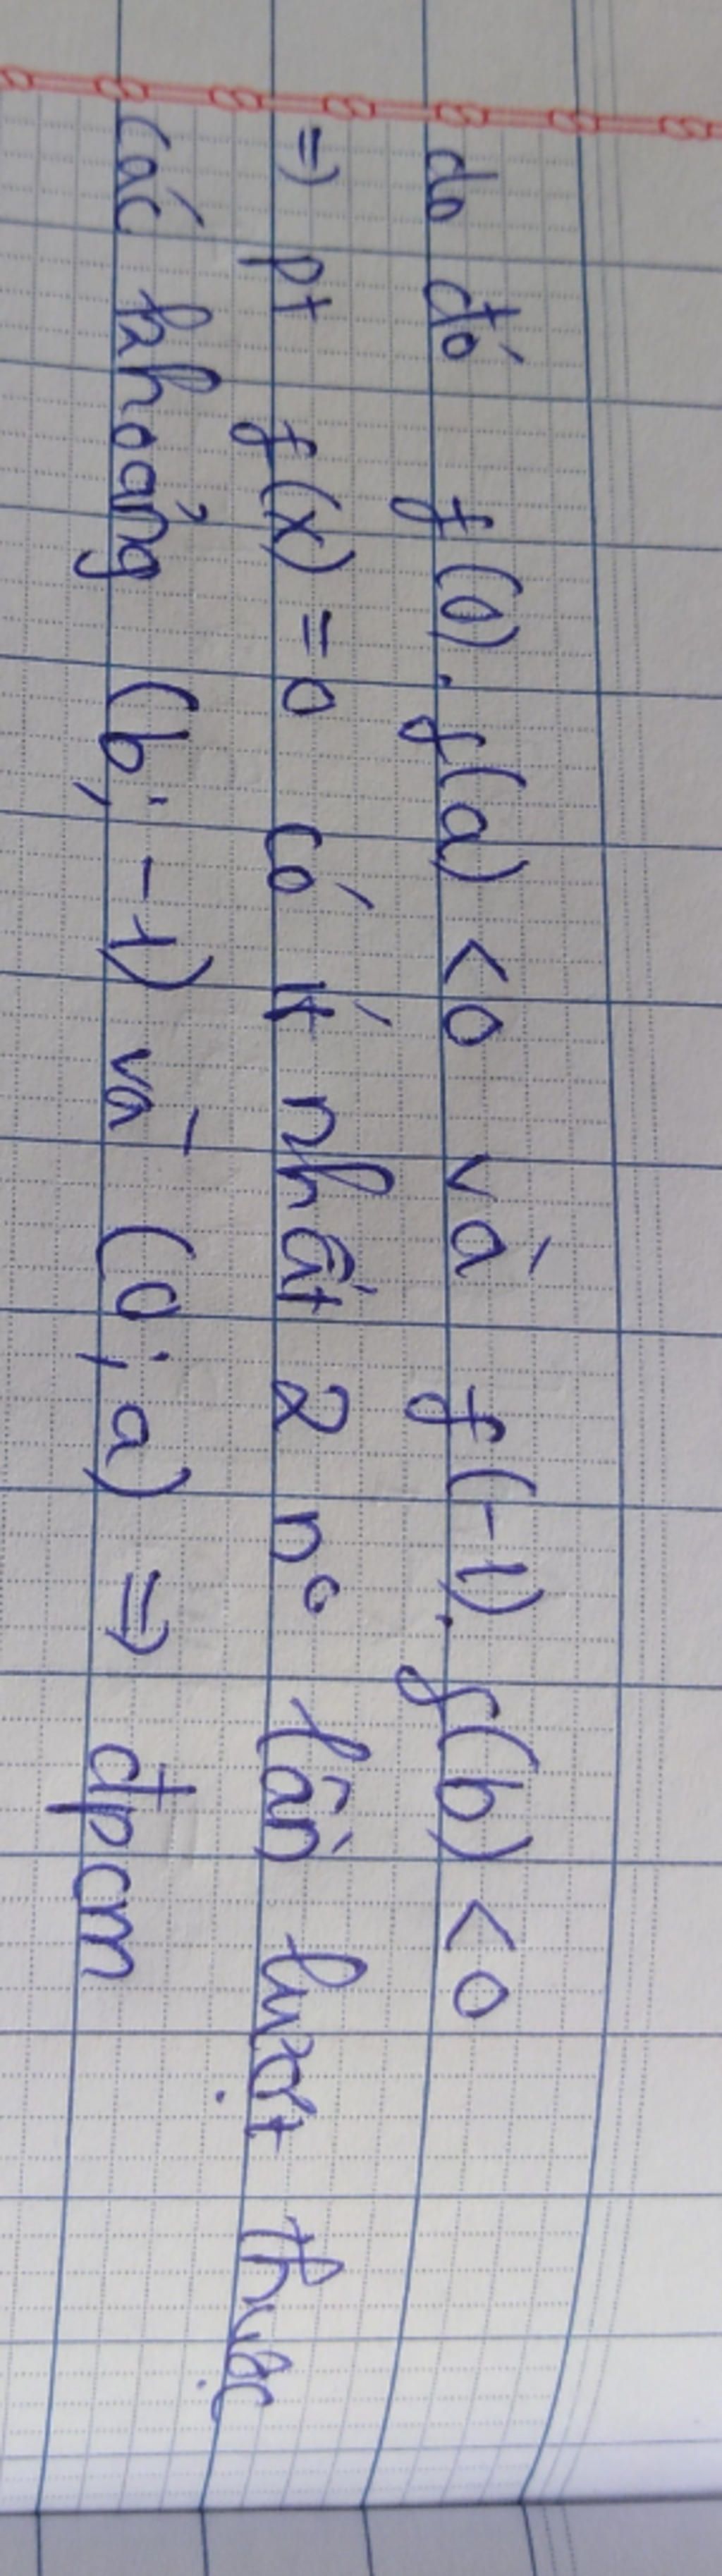 do đó f(0). f(a) <0 và f(-1). f(b) <0
=) pt f(x) =0 có ít nhất 2 n° lần lượt thuộc
các khoảng (b; -1) và (0; a) => đpcm